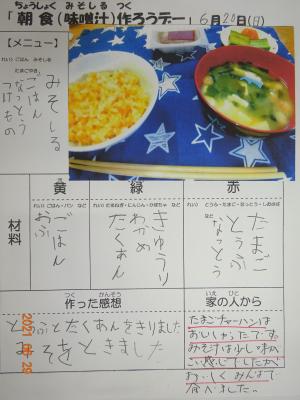 ちょうしょく みそしる つく
「朝食(味噌汁)作ろうデー」6月20日(日)
【メニュー】
れい) ごはん みそしる
たまごやき
みそしる
ごはん
なっとう
つけもの
黄
緑
赤
れい) ごはん・パン など
れい) たまねぎ・にんじん・かぼちゃ など
れい) とうふ・たまご・なっとう・しおさば
など
材料
ごはん
おふ
きゅうり
わかめ
たくあん
たまご
とうふ
なっとう
つく かんそう
作った感想
いえ ひと
家の人から
とうふとたくあんをきりました
みそをときました
たまごチャーハンは
おいしかったです。
みそ汁は少し味が
こい感じでしたが
おいしくみんなで
食べました。